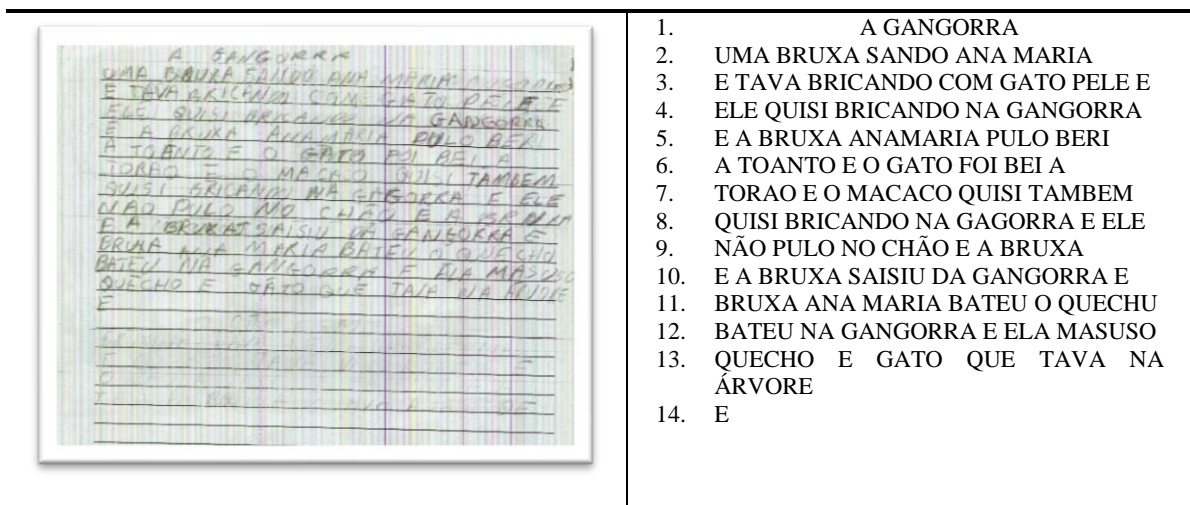 A GANGORRA
UMA BRUXA SANDO ANA MARIA
E TAVA BRICANDO COM GATO PELE E
ELE QUISI BRICANDO NA GANGORRA
E A BRUXA ANAMARIA PULO BERI
A TOANTO E O GATO FOI BEI A
TORAO E O MACACO QUISI TAMBEM
QUISI BRICANDO NA GAGORRA E ELE
NAO PULO NO CHÃO E A BRUXA
E A BRUXA SAISIU DA GANGORRA E
BRUXA ANA MARIA BATEU O QUECHO
BATEU NA GANGORRA E ELA MASUSO
QUECHO E GATO QUE TAVA NA ARVORE
E
1. A GANGORRA
2. UMA BRUXA SANDO ANA MARIA
3. E TAVA BRICANDO COM GATO PELE E
4. ELE QUISI BRICANDO NA GANGORRA
5. E A BRUXA ANAMARIA PULO BERI
6. A TOANTO E O GATO FOI BEI A
7. TORAO E O MACACO QUISI TAMBEM
8. QUISI BRICANDO NA GAGORRA E ELE
9. NÃO PULO NO CHÃO E A BRUXA
10. E A BRUXA SAISIU DA GANGORRA E
11. BRUXA ANA MARIA BATEU O QUECHU
12. BATEU NA GANGORRA E ELA MASUSO
13. QUECHO E GATO QUE TAVA NA
ÁRVORE
14. E